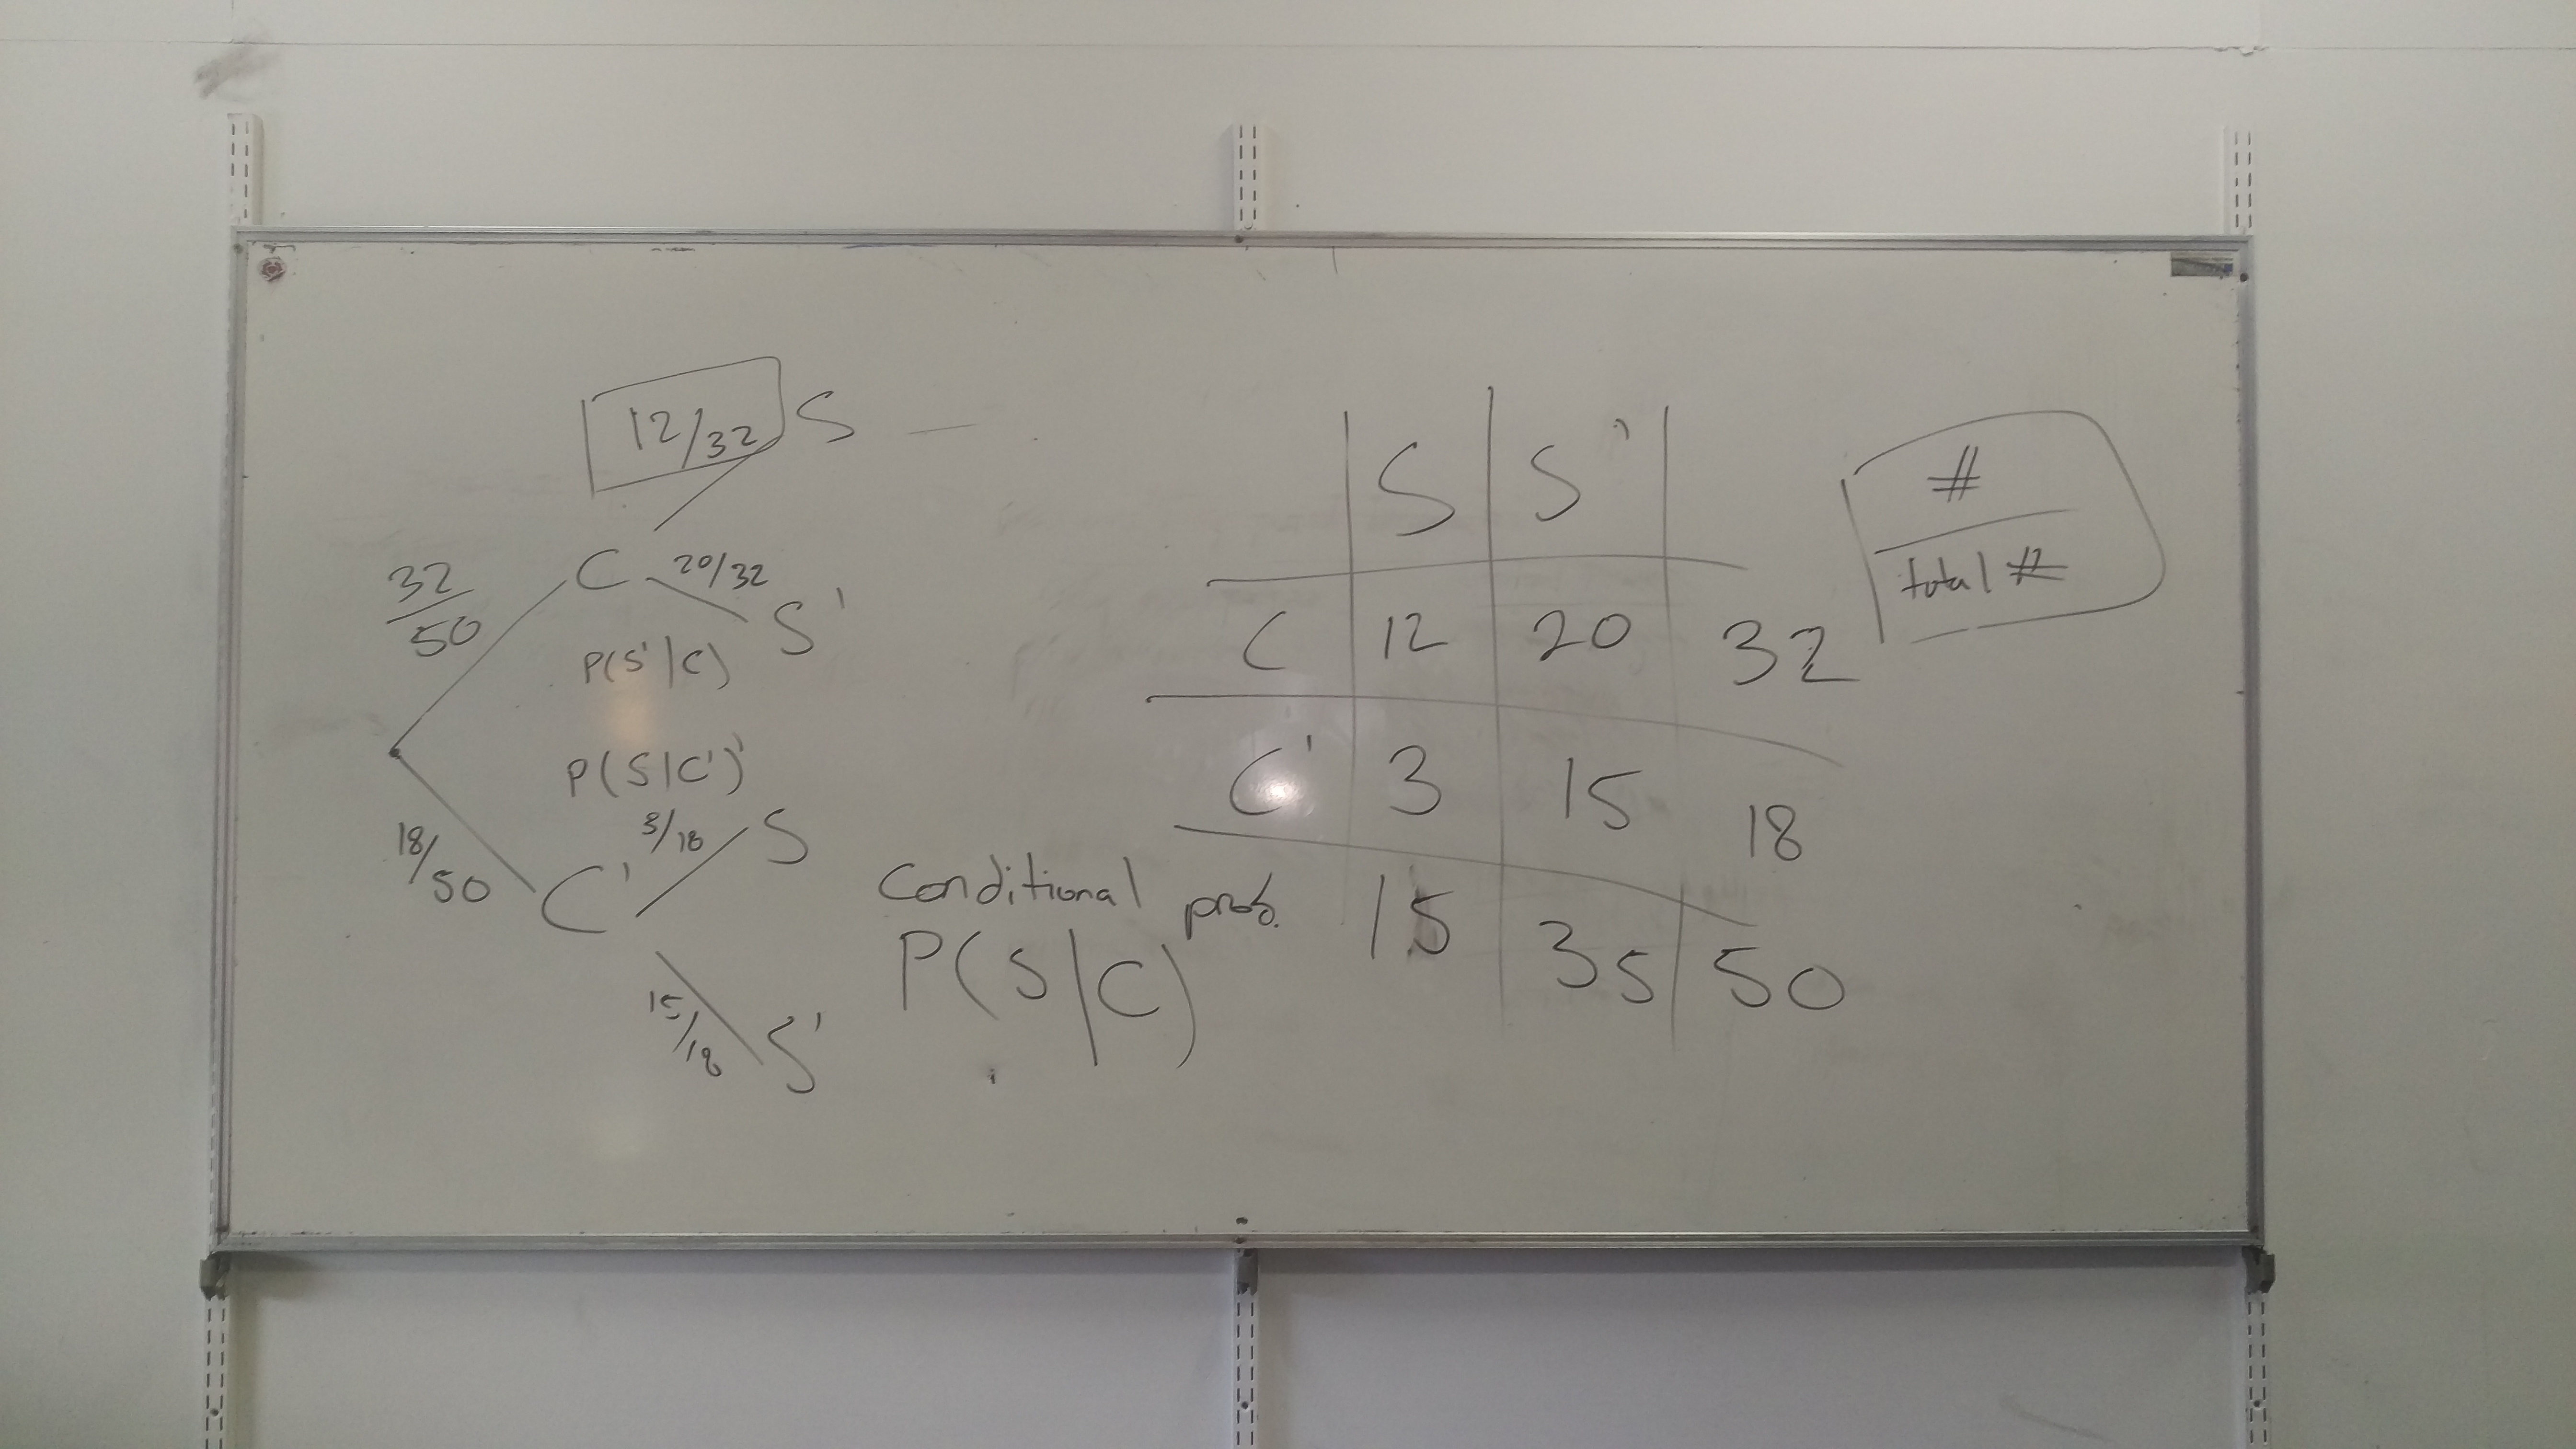 12/32 S
32/50 C 20/32 S'
P(S'|C)
P(S|C')
3/18 S
18/50 C'
15/18 S'
Conditional prob.
P(S|C)
S S'
C 12 20 32
C' 3 15 18
15 35 50
#
total #